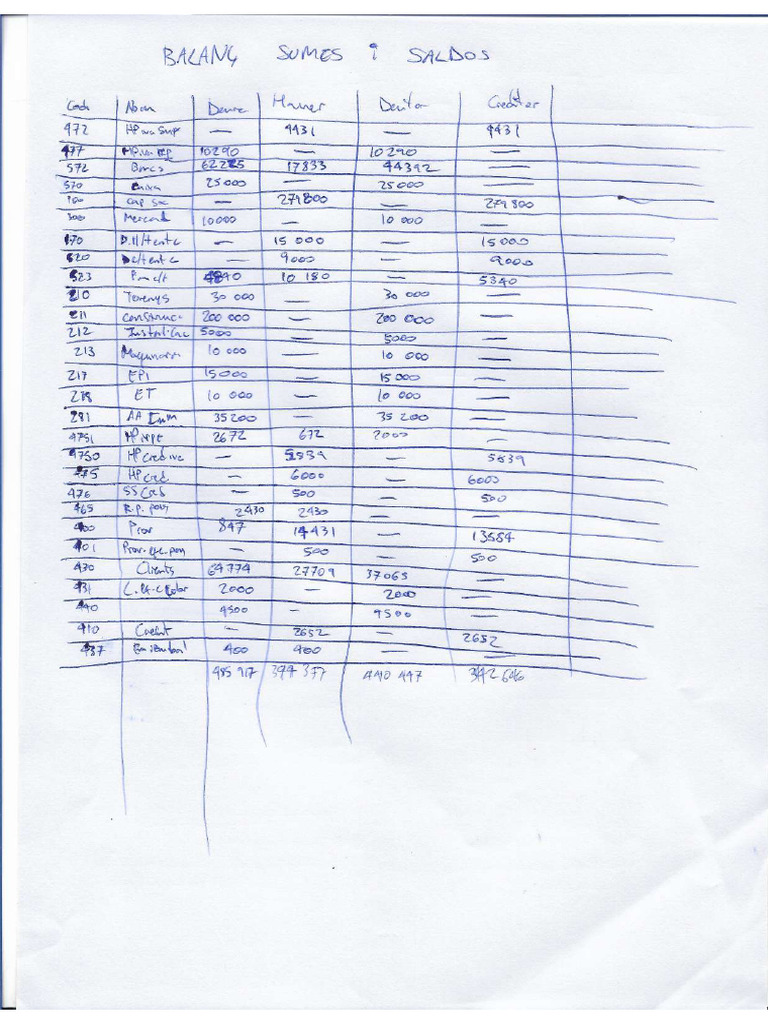 BALANÇ SUMES i SALDOS
Codi Nom Deure Haver Deutor Creditor
472 HP iva Sup — 4431 — 4431
477 HP iva rep 10290 — 10290 —
572 Bancs 62225 17833 44392 —
570 Caixa 25000 — 25000 —
100 Cap Soc — 279800 — 279800
300 Mercad 10000 — 10 000 —
170 — 15 000 — 15000
520 — 9000 — 9000
523 4840 10 180 5340
210 Terrenys 30 000 — 30 000 —
211 Construcc 200 000 — 200 000 —
212 5000 — 5000 —
213 Maquinaria 10 000 — 10 000 —
217 EPI 15000 — 15000 —
218 ET 10 000 — 10 000 —
281 AA Inm 35200 — 35 200 —
4751 HP rept 2672 672 2000 —
4750 HP cred iva — 5839 — 5839
475 HP cred — 6000 — 6000
476 SS Cred — 500 — 500
465 R.P. pen 2430 2430 — —
400 Prov 847 14431 — 13584
401 Prov. efc. pen — 500 — 500
430 Clients 64774 27709 37065 —
431 2000 — 2000 —
440 4500 — 4500 —
410 Credit — 2652 — 2652
437 400 400 — —
485 917 394 377 440 447 342 646